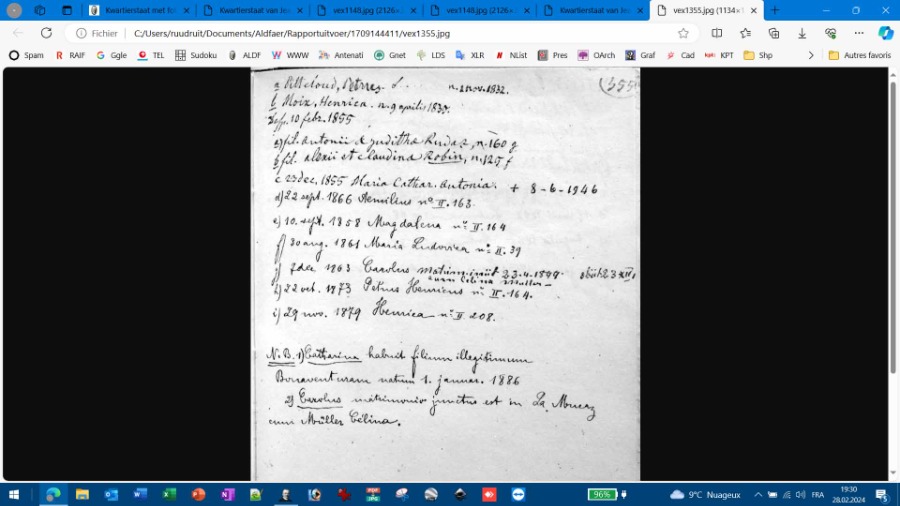 Kwartierstaat met fo
Kwartierstaat van Je
vex1148.jpg (2126×
vex1148.jpg (2126×
Kwartierstaat van Je
vex1355.jpg (1134×1
Fichier
C:/Users/ruudruit/Documents/Aldfaer/Rapportuitvoer/1709144411/vex1355.jpg
Spam RAIF Ggle TEL Sudoku ALDF WWW Antenati Gnet LDS XLR NList Pres OArch Graf Cad KPT Shp Autres favoris
a Petrus n. 2 nov. 1832. 355
b Moix, Henrica. n. 9 aprilis
10 febr. 1855
a) fil. antonii & juditha Rudaz, n. 160 g
b fil. alexii et claudina Robin, n. 125 f
c 23 dec. 1855 Maria Cathar. Antonia. + 8-6-1946
d) 22 sept. 1866 Aemilius nº II. 163.
e) 10. sept. 1858 Magdalena nº II. 164
f) 30 aug. 1861 Maria Ludovica nº II. 39
g) 7 dec 1863 Carolus 23.4.1899. obiit 23 XII,
cum Celina Muller
h) 22 oct. 1873 Petrus Henricus nº II. 164.
i) 29 nov. 1879 Henrica nº II 208.
N.B. 1) Catharina habuit filium illegitimum
Bonaventuram natum 1. januar. 1886
2) Carolus matrimonio junctus est in La
cum Müller Célina.
96%
9°C Nuageux
FRA
19:30
28.02.2024